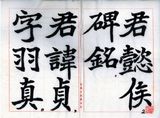 君懿侯
碑銘
君諱貞
字羽真